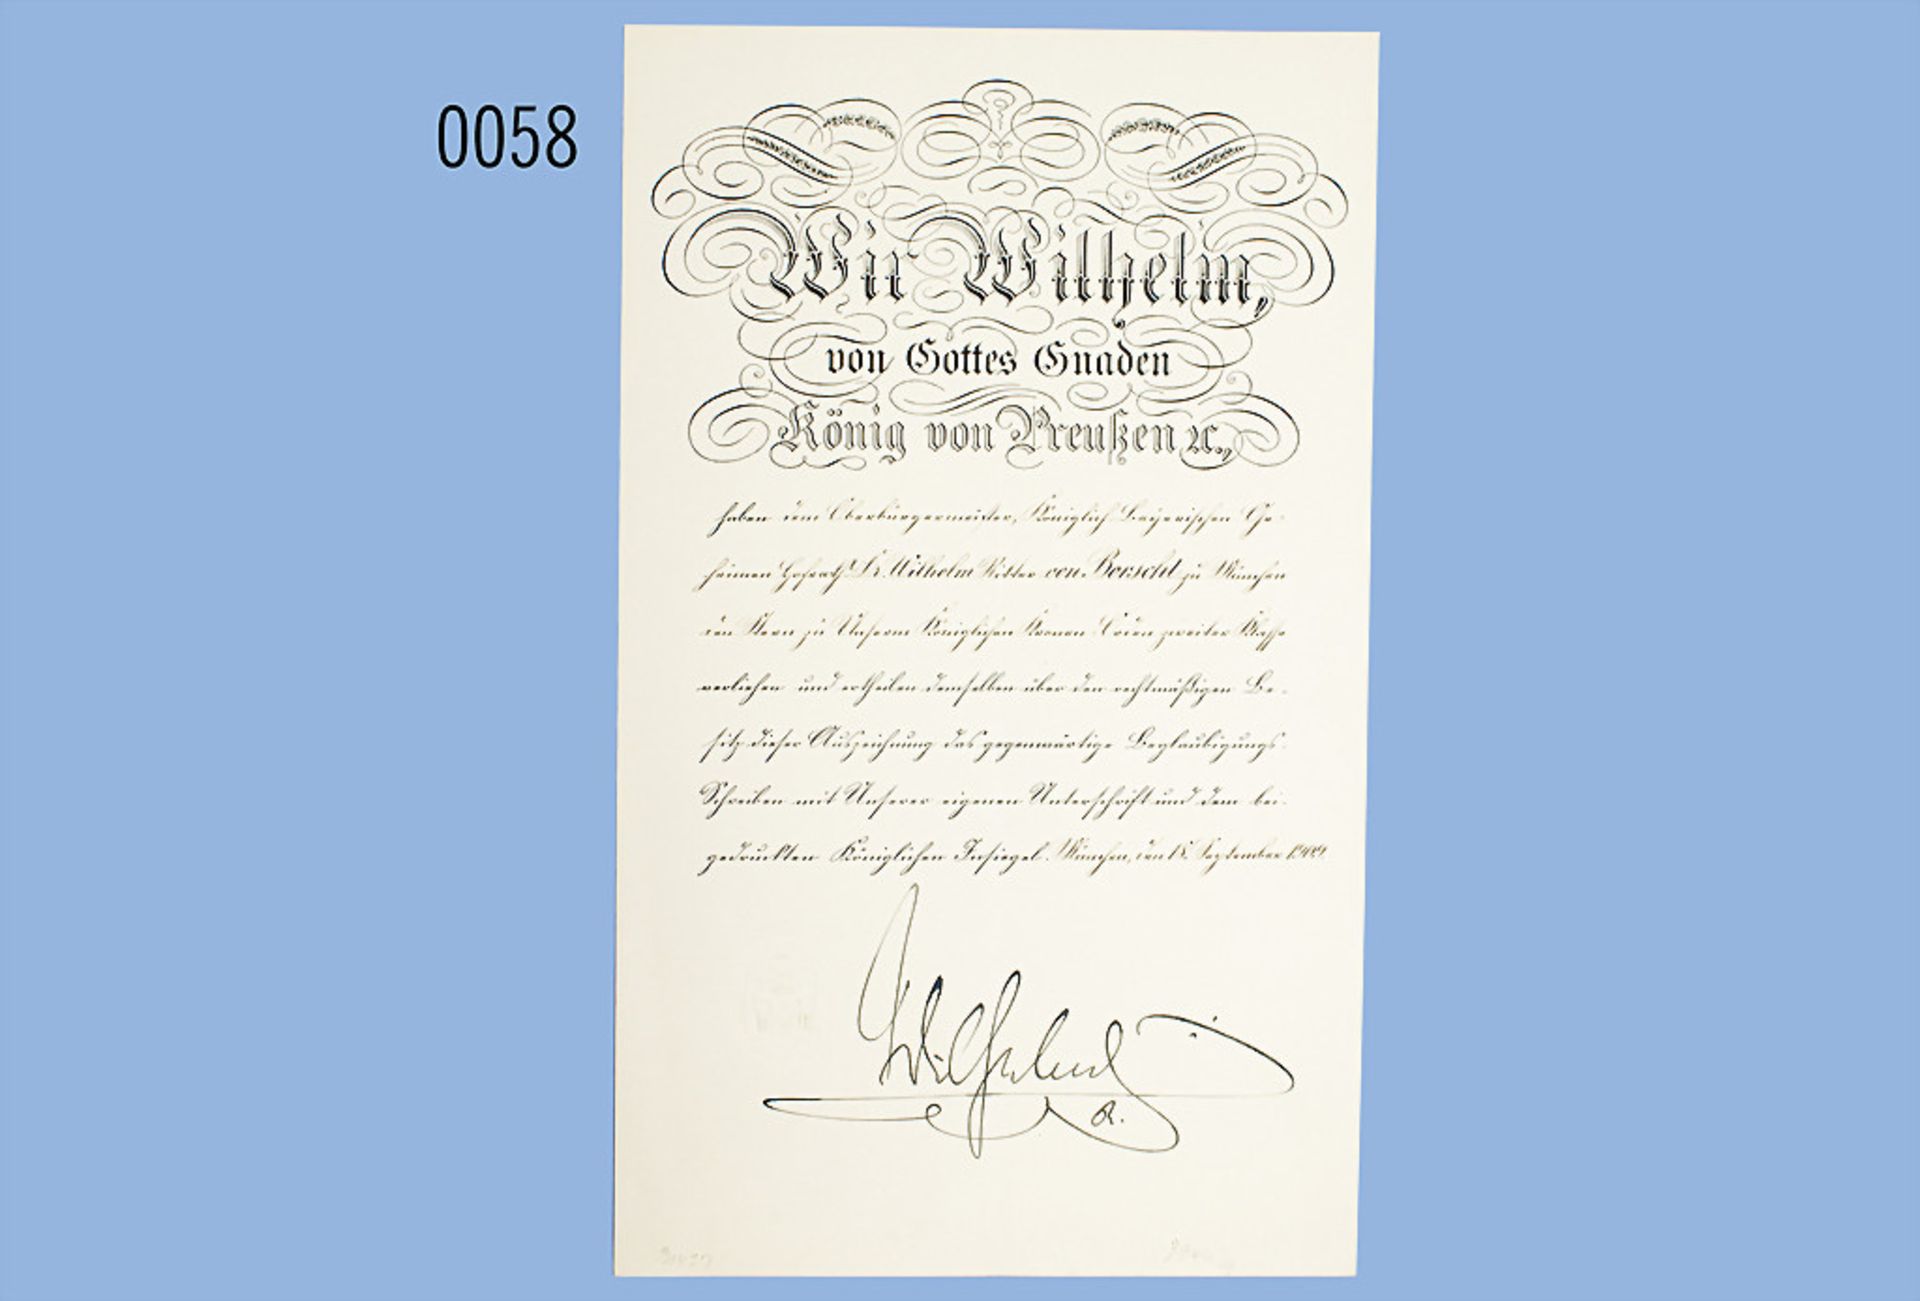 0058
Wir Wilhelm,
von Gottes Gnaden
König von Preußen ꝛc.,
haben dem Oberbürgermeister, Königlich Bayerischen Ge-
heimen Hofrath Dr. Wilhelm Ritter von Borscht zu München
den Stern zu Unserm Königlichen Kronen-Orden zweiter Klasse
verliehen und ertheilen demselben über den rechtmäßigen Be-
sitz dieser Auszeichnung das gegenwärtige Beglaubigungs-
Schreiben mit Unserer eigenen Unterschrift und dem bei-
gedruckten Königlichen Insiegel. München, den 18. September 1909.
Wilhelm
R.